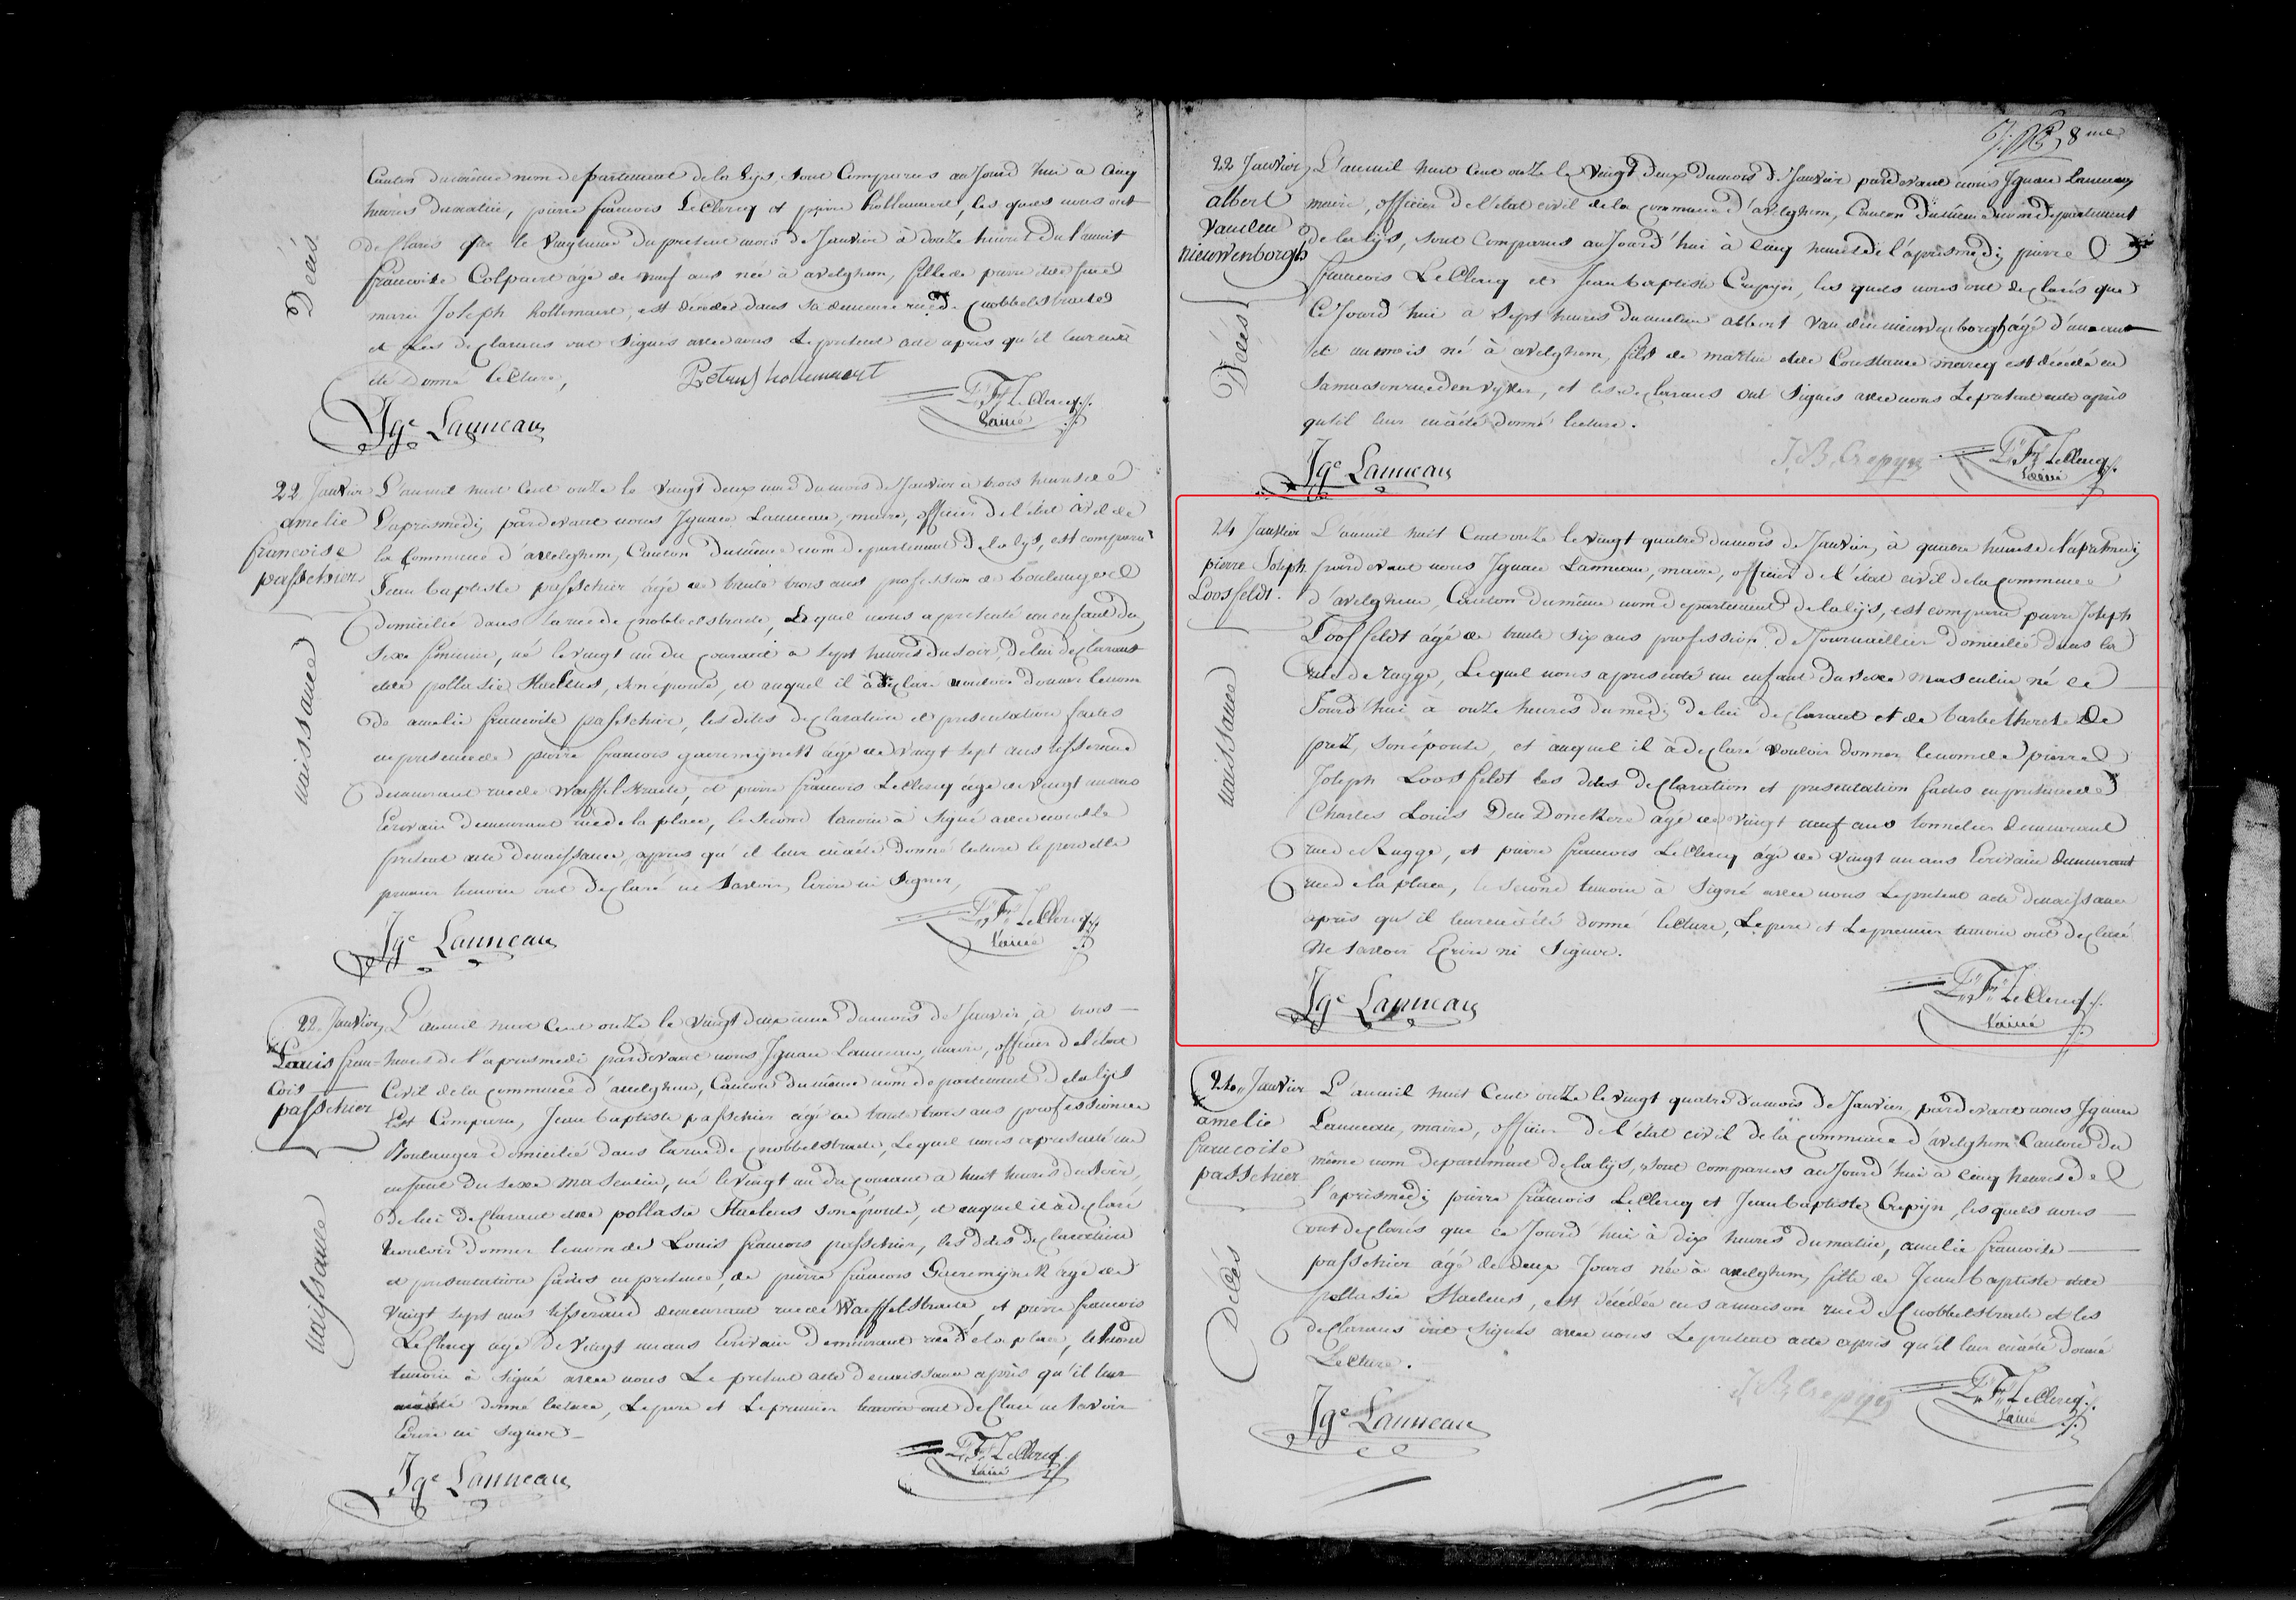 Canton du même nom departement de la Lijs, sont Comparus au Jourd'hui à Cinq
heures du matin, pierre francois LeClercq et pierre hollemaert, les quels nous ont
declarés que le vingtunme du present mois de Janvier à douze heures du
francoise Colpaert âgé de neuf ans née à avelghem, fille de pierre et de feue
marie Joseph hollemaert, est décédée dans sa demeure rue de Cnobbelstraete
et Les declarans ont Signés avec nous Le present acte après qu'il leur en à
été donné lecture,
Décès
Petrus hollemaert
P. Fr. LeClercq
l'ainé
Ige Lanneau
22 Janvier
amelie
francoise
passchier
naissance
L'an mil huit Cent onze le vingt deuxieme du mois de Janvier à trois heures de
l'apresmedij pardevant nous Ignace Lanneau, maire, officier de l'état civil de
la Commune d'avelghem, Canton du même nom departement de la lijs, est comparu
Jean baptiste passchier âgé de trente trois ans profession de Boulanger
domicilié dans la rue de Cnobbelstraete, Lequel nous a presenté un enfant du
Sexe feminin, né le vingt un du courant a sept heures du soir, de lui declarant
et de pollasie Haelens, son épouse, et auquel il à declaré vouloir donner le nom
de amelie francoise passchier, les dites declaration et presentation faites
en presence de pierre francois Gueremijnck âgé de vingt sept ans tisserand
demeurant rue de Waffelstraete, et pierre francois LeClercq âgé de vingt un ans
Ecrivain demeurant rue de la place, le second temoin à signé avec nous le
present acte de naissance, après qu'il leur en à été donné lecture le pere et le
premier temoin ont declaré ne Savoir Ecrire ni Signer,
P. Fr. LeClercq
l'ainé
Ige Lanneau
22 Janvier
Louis fran-
cois
passchier
naissance
L'an mil huit Cent onze le vingt deuxieme du mois de Janvier à trois
heures de l'apresmedi pardevant nous Ignace Lanneau, maire, officier de l'état
Civil de la commune d'avelghem, Canton du même nom departement de la lijs
Est Comparu, Jean baptiste passchier âgé de trente trois ans profession de
Boulanger domicilié dans la rue de Cnobbelstraete, Lequel nous a presenté un
enfant du sexe masculin, né le vingt un du courant à huit heures du soir,
de lui declarant et de pollasie Haelens son épouse, et auquel il à declaré
vouloir donner le nom de Louis francois passchier, les dites declaration
et presentation faites en presence, de pierre francois Gueremijnck âgé de
vingt sept ans tisserand demeurant rue de Waeffelstraete, et pierre francois
LeClercq âgé de vingt un ans Ecrivain demeurant rue de la place, le second
temoin à signé avec nous Le present acte de naissance après qu'il leur
en à été donné lecture, Le pere et Le premier temoin ont declaré ne Savoir
Ecrire ni Signer
P. Fr. LeClercq
l'ainé
Ige Lanneau
8me
22 Janvier
albert
vanden
nieuwenborgh
Décès
L'an mil huit Cent onze le vingt deux du mois de Janvier pardevant nous Ignace Lanneau
maire, officier de l'état civil de la commune d'avelghem, Canton du même nom departement
de la lijs, sont Comparus au Jourd'hui à Cinq heures de l'apresmedij pierre
francois LeClercq et Jean baptiste Crepijn, les quels nous ont declarés que
Ce Jourd'hui a Sept heures du matin albert van den nieuwenborgh âgé d'un an
et un mois né à avelghem, fils de martin et de Constance marcq est décédé en
sa maison rue den vijver, et les declarans ont Signés avec nous Le present acte après
qu'il leur en à été donné lecture.
J. B. Crepijn
P. Fr. LeClercq
l'ainé
Ige Lanneau
24 Janvier
pierre Joseph
Loosfeldt.
naissance
L'an mil huit Cent onze le vingt quatre du mois de Janvier, à quatre heures de l'apresmedij
pardevant nous Ignace Lanneau, maire, officier de l'état civil de la commune
d'avelghem, Canton du même nom departement de la lijs, est comparu pierre Joseph
Loosfeldt âgé de trente six ans profession de Journaillier domicilié dans la
rue de rugge, Lequel nous a presenté un enfant du sexe masculin né ce
Jourd'hui à onze heures du medij de lui declarant et de barbe therese De
prez, son épouse, et auquel il à declaré vouloir donner le nom de pierre
Joseph Loosfeldt les dites declaration et presentation faites en presence de
Charles Louis Den Donckere âgé de vingt neuf ans tonnelier demeurant
rue de Rugge, et pierre francois LeClercq âgé de vingt un ans Ecrivain demeurant
rue de la place, le second temoin à signé avec nous Le present acte de naissance
après qu'il leur en à été donné lecture, Le pere et Le premier temoin ont declaré
Ne Savoir Ecrire ni Signer.
P. Fr. LeClercq
l'ainé
Ige Lanneau
24 Janvier
amelie
francoise
passchier
Décès
L'an mil huit Cent onze le vingt quatre du mois de Janvier, pardevant nous Ignace
Lanneau, maire, officier de l'état civil de la commune d'avelghem Canton du
même nom departement de la lijs, sont comparus au Jourd'hui à cinq heures de
l'apresmedij pierre francois LeClercq et Jean baptiste Crepijn, les quels nous
ont declarés que ce Jourd'hui à dix heures du matin, amelie francoise
passchier âgé de deux Jours née à avelghem, fille de Jean baptiste et de
pollasie Haelens, est décédée en sa maison rue de Cnobbelstraete et les
declarans ont Signés avec nous Le present acte après qu'il leur en à été donné
Lecture.
J. B. Crepijn
P. Fr. LeClercq
l'ainé
Ige Lanneau